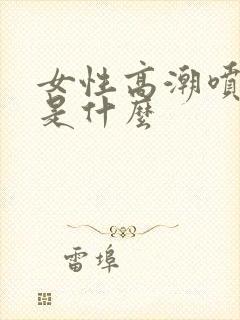 女性高潮噴
是什麼
雷埠